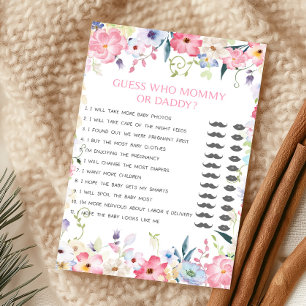 GUESS WHO MOMMY
OR DADDY?
1. I WILL TAKE MORE BABY PHOTOS
2. I WILL TAKE CARE OF THE NIGHT FEEDS
3. I FOUND OUT WE WERE PREGNANT FIRST
4. I BUY THE MOST BABY CLOTHES
5. I'M ENJOYING THE PREGNANCY
6. I WILL CHANGE THE MOST DIAPERS
7. I WANT MORE CHILDREN
8. I HOPE THE BABY GETS MY SMARTS
9. I WILL SPOIL THE BABY MOST
10. I'M MORE NERVOUS ABOUT LABOR & DELIVERY
11. I HOPE THE BABY LOOKS LIKE ME